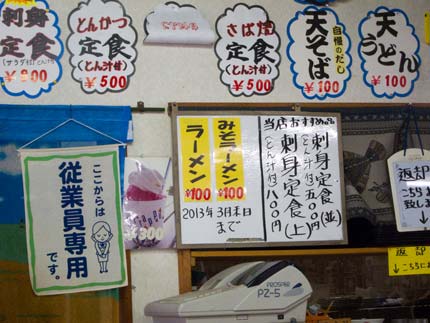 刺身
定食
(サラダ付)とん汁
¥800
とんかつ
定食
(とん汁付)
¥500
さば焼
定食
(とん汁付)
¥500
天そば
自慢のだし
¥100
天
うどん
¥100
ラーメン
¥100
みそラーメン
¥100
2013年3月末日
まで
当店おすすめ品
刺身定食(並)
(とん汁付)五〇〇円
刺身定食(上)
(とん汁付)八〇〇円
ここからは
従業員専用
です。
¥300
返却
こちらに
致しま
返却
↓こちらにお
PROSPER
PZ-5